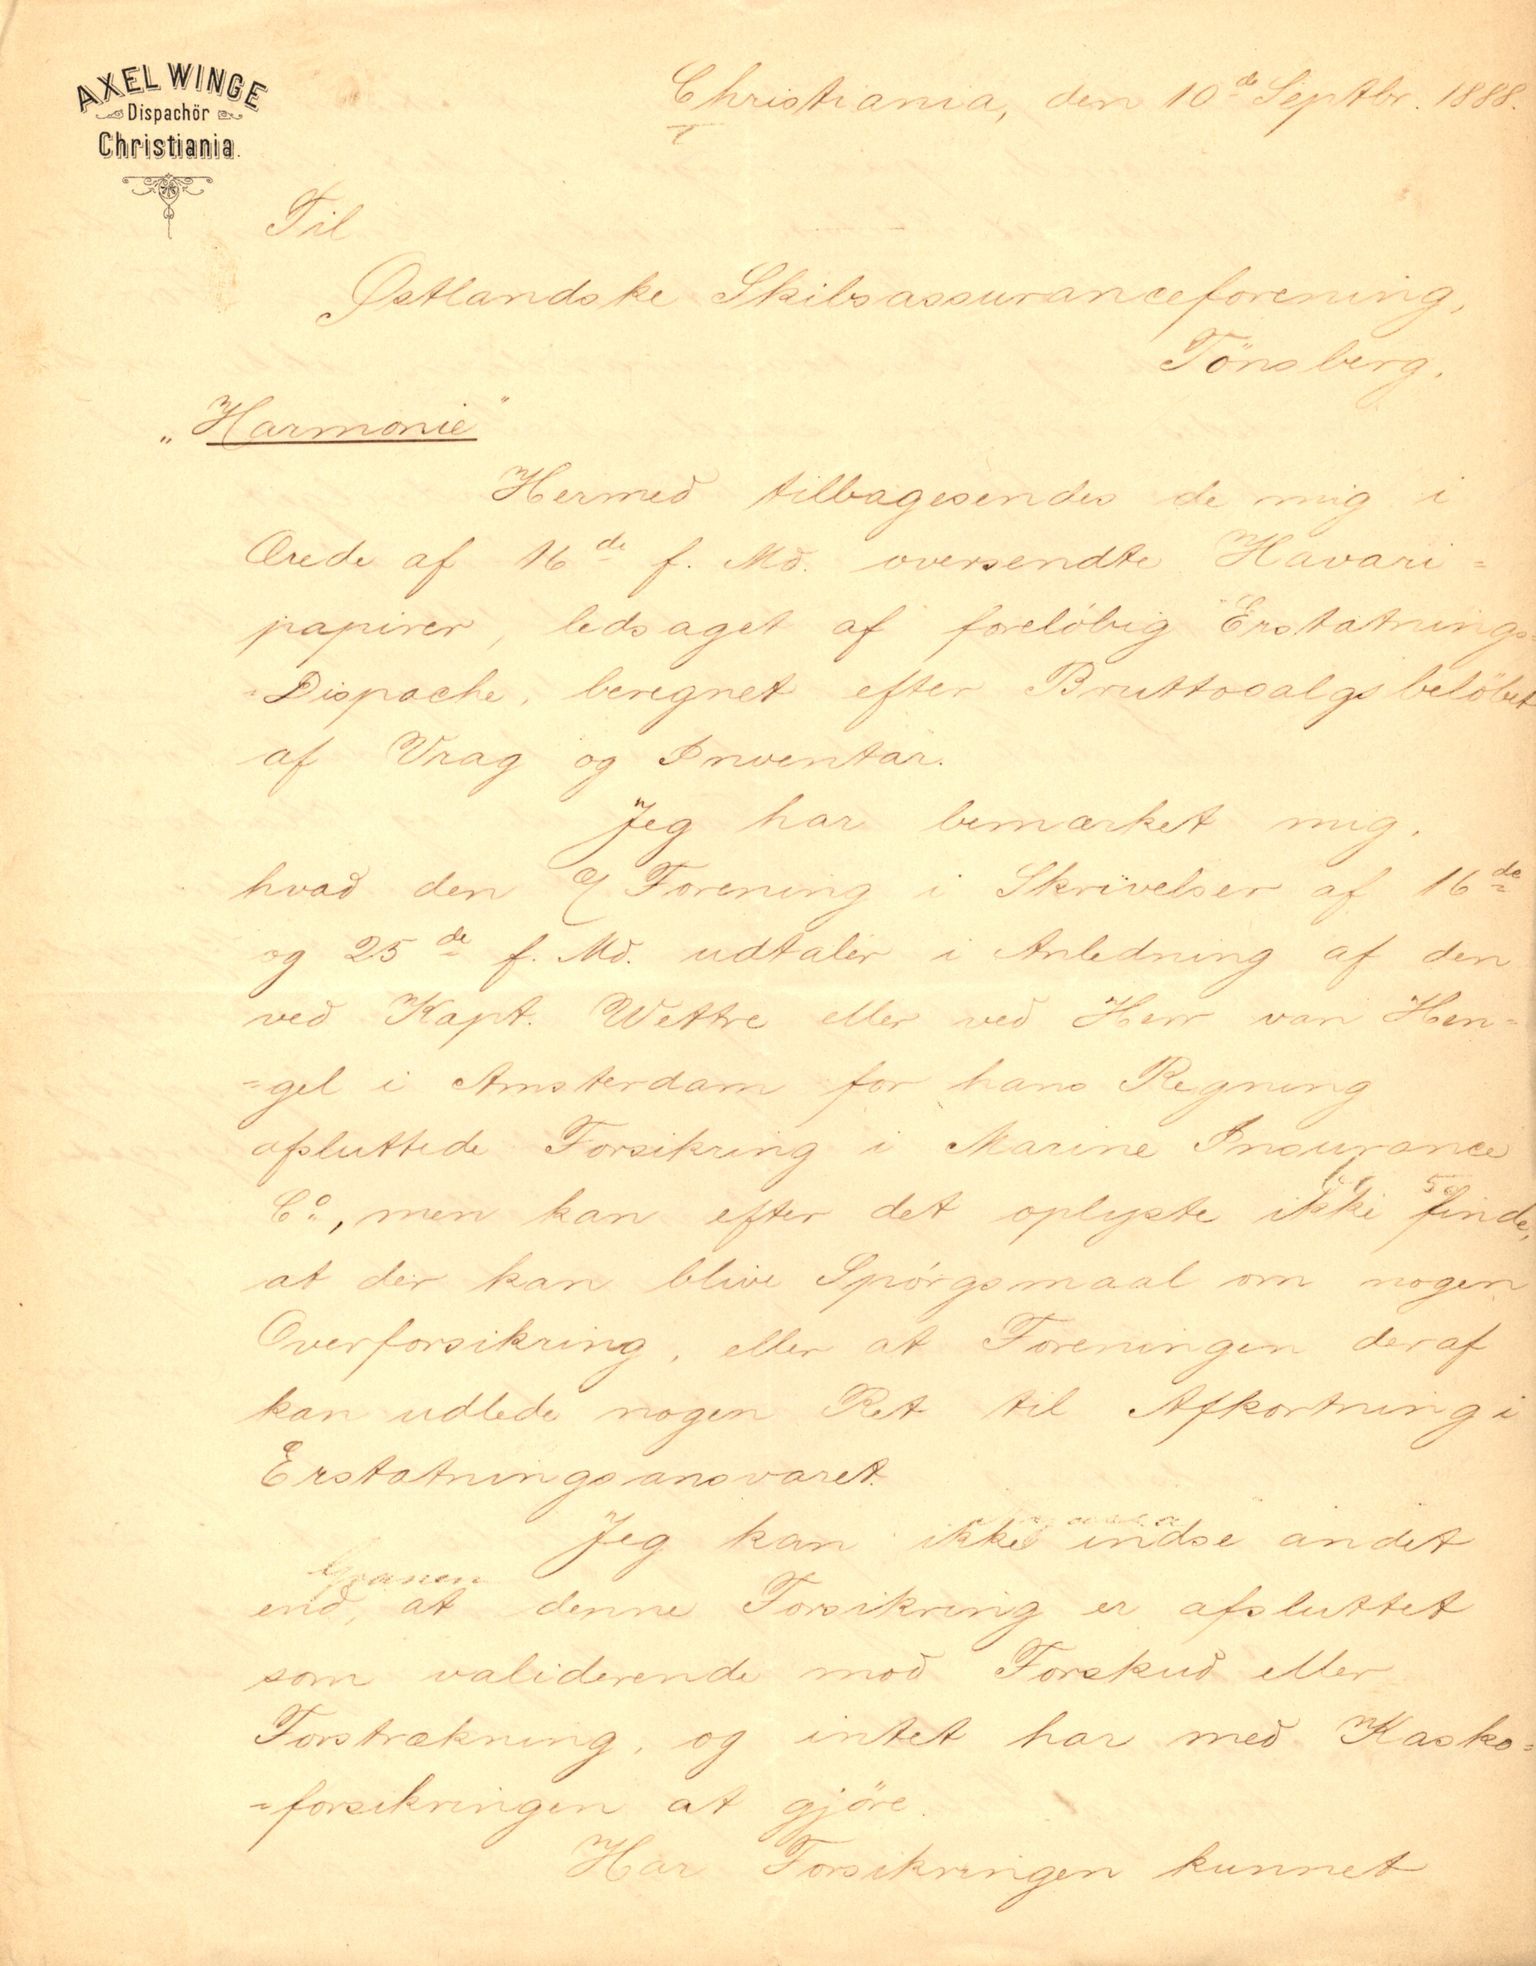 AXEL WINGE
Dispachör
Christiania.
Christiania, den 10de Septbr. 1888.
Til
Østlandske Skibsassuranceforening,
Tönsberg.
„Harmonie"
Hermed tilbagesendes de mig i
Ærede af 16de f. Md. oversendte Havari=
papirer, ledsaget af foreløbig Erstatnings=
=Dispache, beregnet efter Bruttosalgsbelöbet
af Vrag og Inventar.
Jeg har bemærket mig,
hvad den Forening i Skrivelser af 16de
og 25de f. Md. udtaler i Anledning af den
ved Kapt. Wettre eller ved Herr van Hen=
=gel i Amsterdam for hans Regning
afsluttede Forsikring i Marine Insurance
Co., men kan efter det oplyste ikke finde,
at der kan blive Spørgsmaal om nogen
Overforsikring, eller at Foreningen deraf
kan udlede nogen Ret til Afkortning i
Erstatningsansvaret.
Jeg kan ikke indse andet
end, at denne Forsikring er afsluttet
som validerende mod Forskud eller
Forstrækning, og intet har med Kasko=
=forsikringen at gjöre.
Har Forsikringen kunnet